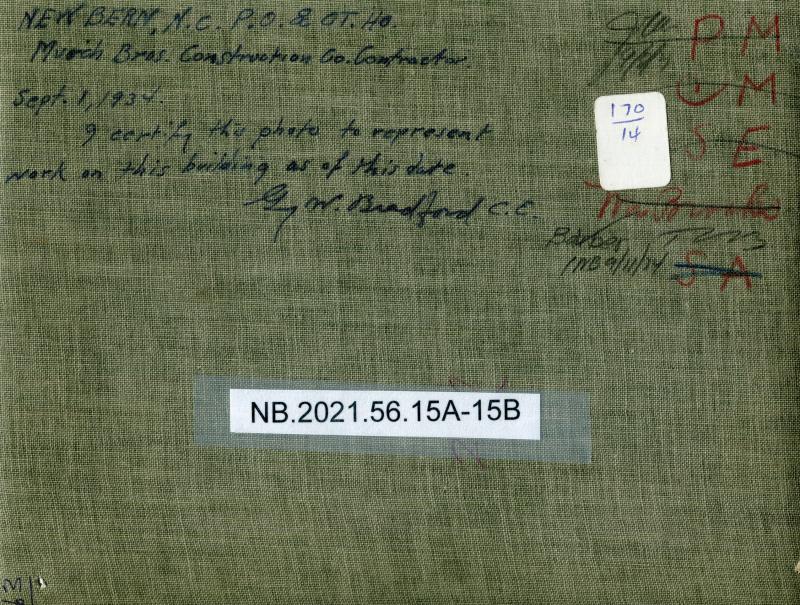 NEW BERN, N.C. P.O. & CT. HO.
Murch Bros. Construction Co. Contractor.
Sept. 1, 1934.
I certify this photo to represent
work on this building as of this date.
Guy W. Bradford C.E.
P M
M
S E
170
14
Barber
S A
NB.2021.56.15A-15B